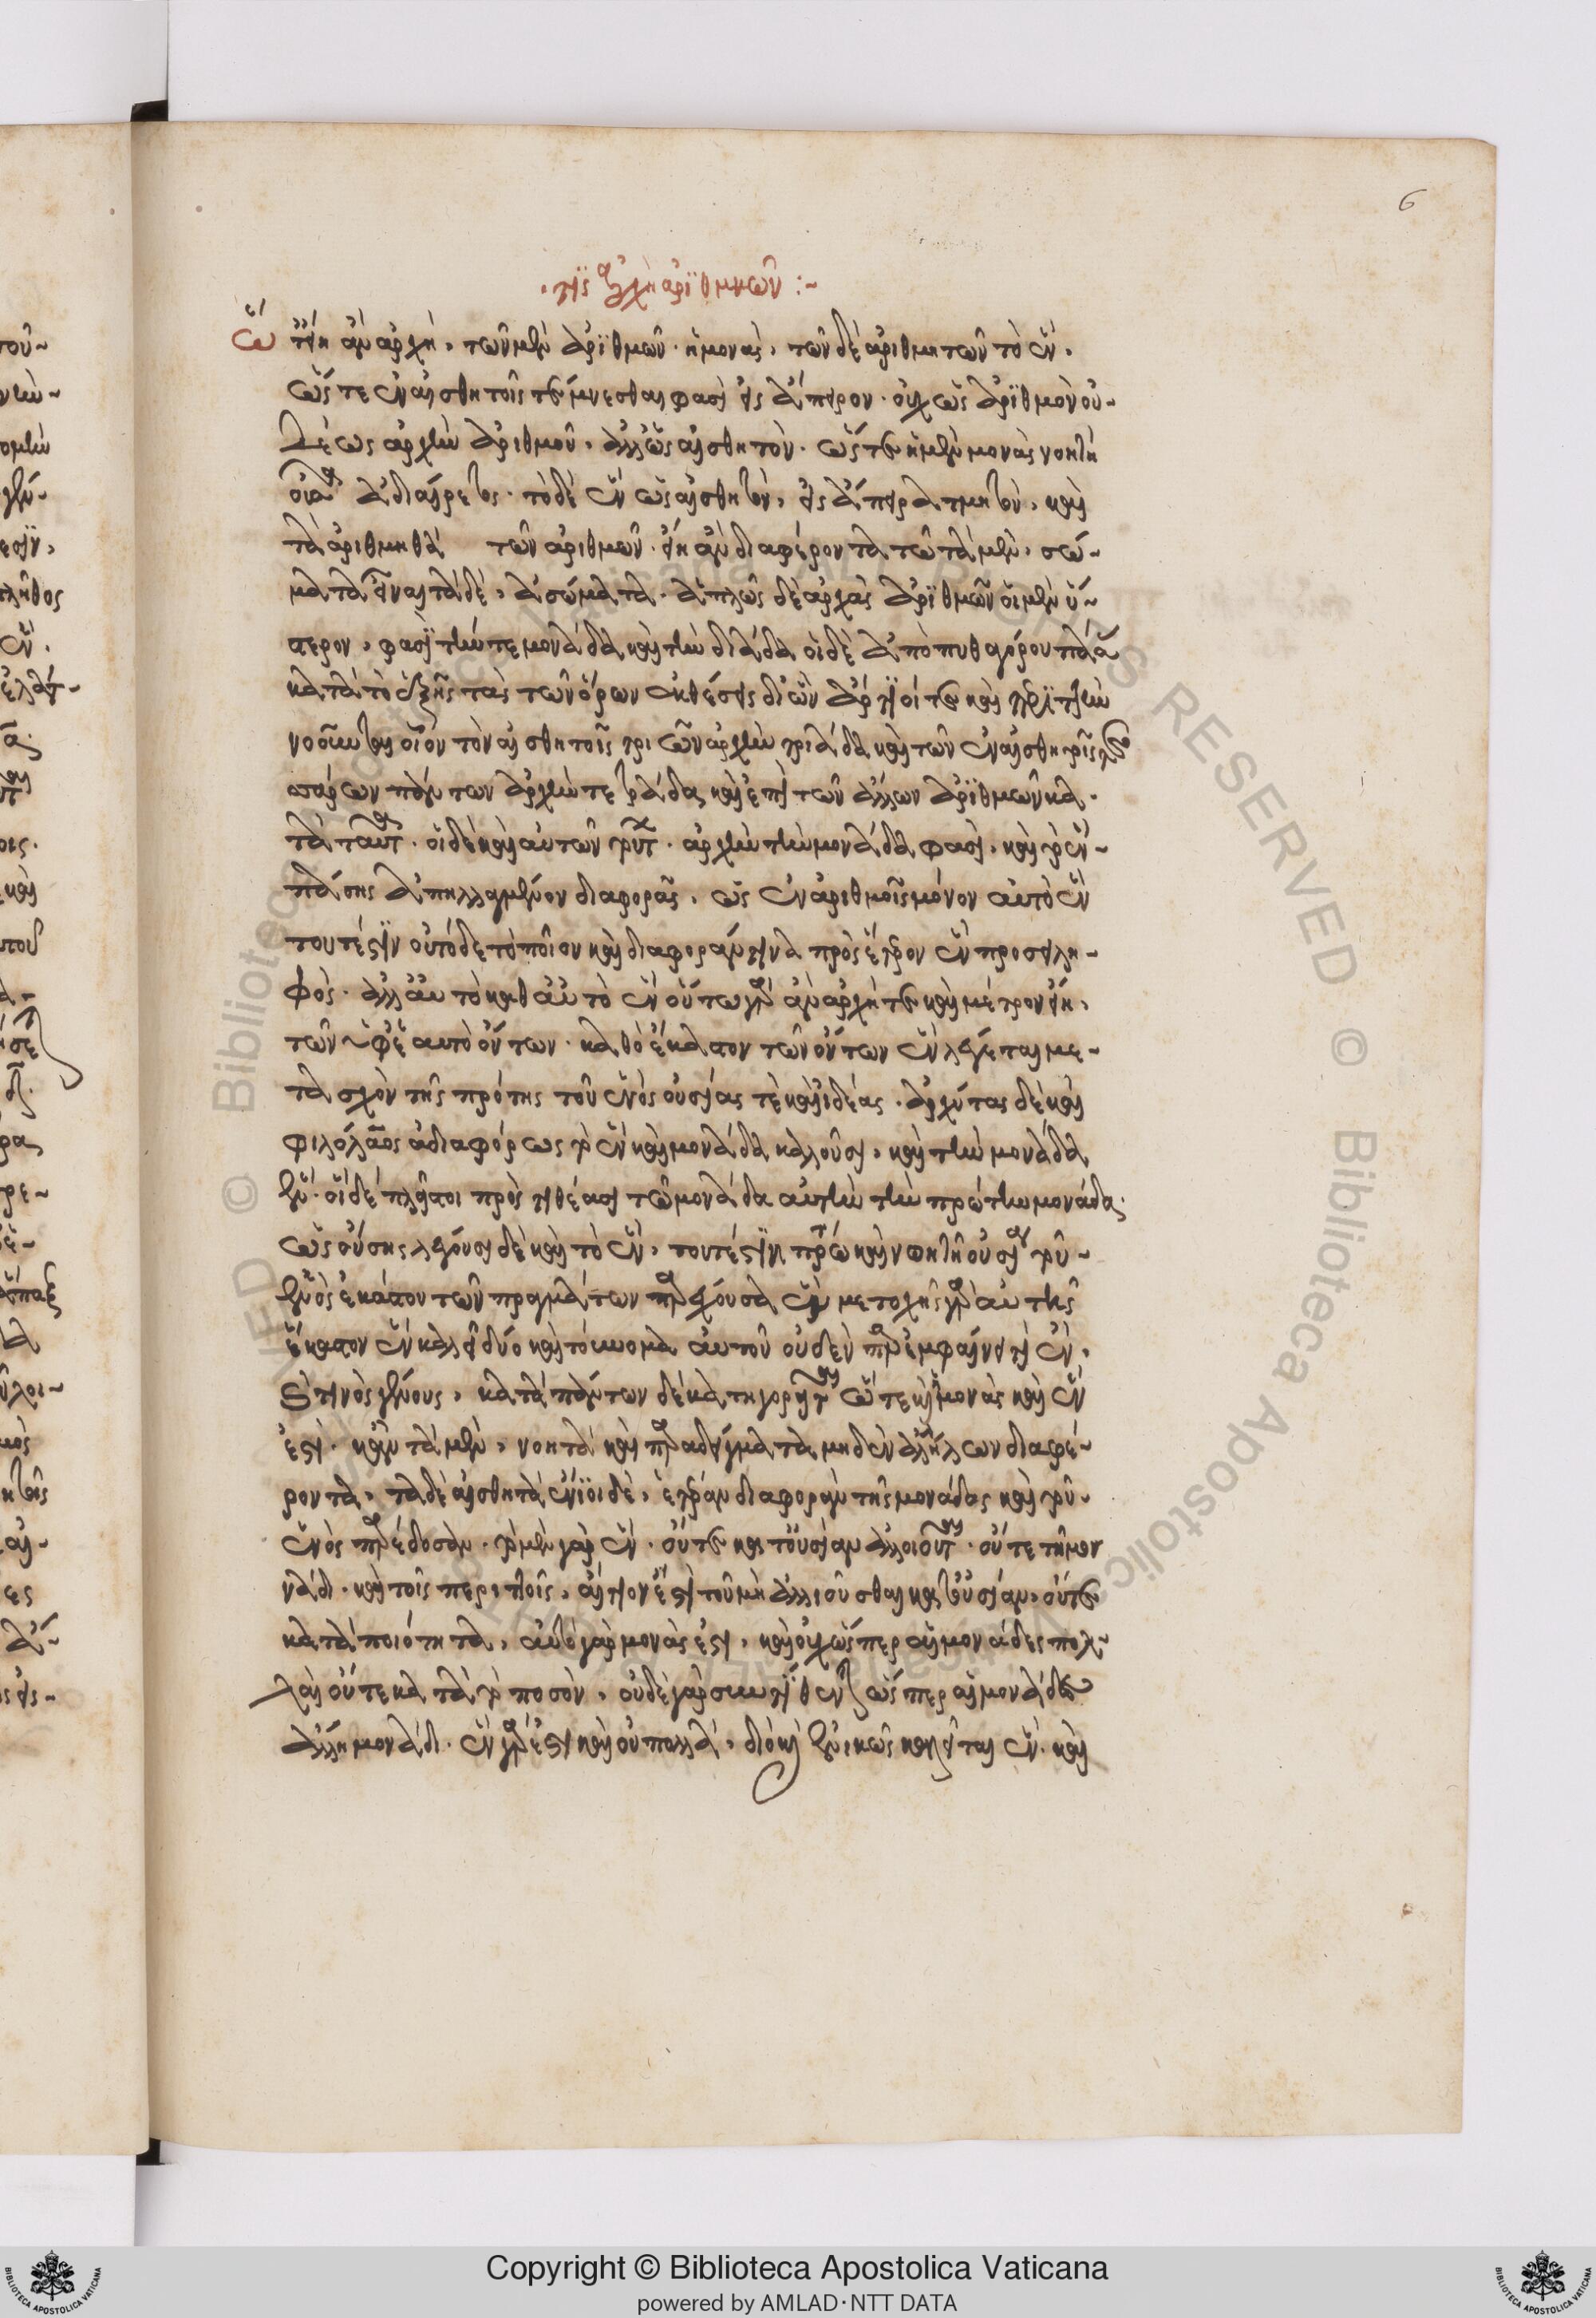 τίς ἀρχὴ ἀρϊθμῶν :~
ὥστ' εἴη ἂν ἀρχὴ, τῶν μὲν ἀρϊθμῶν· ἡ μονάς, τῶν δὲ ἀριθμητῶν τὸ ἕν,
ὥστε ἐν αἰσθητοῖς τέμνεσθαι φασὶν εἰς ἄπειρον· οὐχ ὡς ἀρϊθμὸν οὐ-
δὲ ὡς ἀρχὴν ἀριθμοῦ, ἀλλ' ὡς αἰσθητὸν· ὥστε ἡ μὲν μονὰς νοητὴ
οὖσα ἀδιαίρετος· τὸ δὲ ἓν ὡς αἰσθητὸν, εἰς ἄπειρα τμητὸν, καὶ
τὰ ἀριθμητὰ τῶν ἀριθμῶν· εἴη ἂν διαφέροντα τῶ τὰ μὲν, σώ-
ματα εἶναι τὰ δὲ, ἀσώματα· ἁπλῶς δὲ ἀρχὰς ἀρϊθμῶν οἱ μὲν ὕ-
στερον, φασῒ τήν τε μονάδα καὶ τὴν δυάδα οἱ δὲ ἀπὸ πυθαγόρου πάσας
κατὰ τὸ ἑξῆς τὰς τῶν ὅρων ἐκθέσεις δι' ὧν ἄρτιοί τε καὶ
νοοῦνται οἷον τὸν αἰσθητοῖς τριῶν ἀρχὴν τριάδα καὶ τῶν ἐν αἰσθητοῖς τε
σσάρων πάντων ἀρχὴν τετράδα καὶ ἐπὶ τῶν ἄλλων ἀρϊθμῶν κα·
τὰ ταῦτα· οἱ δὲ καὶ αὐτῶν τούτων· ἀρχὴν τὴν μονάδα φασὶ, καὶ τὸ ἓν-
πάσης ἀπηλλαγμένον διαφορᾶς, ὡς ἐν ἀριθμοῖς μόνον αὐτὸ ἓν
τουτέστιν οὐ τόδε τὸ ποῖον καὶ διαφοράν τινα πρὸς ἕτερον ἓν προσειλη-
φὸς· ἀλλ' αὐτὸ καθ' αὑτὸ ἓν οὕτω γὰρ ἂν ἀρχή τε καὶ μέτρον εἴη,
τῶν ὑφ' ἑαυτὸ ὄντων· καθὸ ἕκαστον τῶν ὄντων ἓν λέγεται με-
τασχὸν τῆς πρότης τοῦ ἑνὸς οὐσίας τὲ καὶ ἰδέας· ἀρχύτας δὲ καὶ
φιλόλαος ἀδιαφόρως τὸ ἓν καὶ μονάδα καλοῦσι, καὶ τὴν μονάδα
ἕν· οἱ δὲ πλεῖστοι προστιθέασι τῶ μονάδα αὐτὴν τὴν πρώτην μονάδα·
ὡς οὔσης λέγουσι δὲ καὶ τὸ ἓν, τουτέστιν πρῶ καὶ νοητὴ οὐσία τοῦ-
ἑνὸς ἑκάστον τῶν πραγμάτων παρέχουσα ἓν μετοχῆς γὰρ αὐτῆς
ἕκαστον ἓν καλεῖ δύο καὶ τὸ ὄνομα αὐτοῦ οὐδὲν παρεμφαίνει τι ἓν,
τίνος γένους, κατὰ πάντων δὲ κατηγορεῖται ὥστε καὶ ἡ μονὰς καὶ ἓν
ἐστι· κἂν τὰ μὲν, νοητὰ καὶ παραδείγματα μηδὲν ἀλλήλων διαφέ-
ροντα, τὰ δὲ αἰσθητὰ ἔνϊοι δὲ, ἑτέραν διαφορὰν τῆς μονάδος καὶ τοῦ-
ἑνὸς παρέδοσαν· τὸ μὲν γὰρ ἓν· οὔτε κατ' οὐσίαν ἀλλοιοῦται· οὔτε τῆ μο
νάδι· καὶ τοῖς περιττοῖς, αἴτιον ἔστι τοῦ μὴ ἀλλιοῦσθαι κατ' οὐσίαν, οὔτε
κατὰ ποιότητα, αὐτὸ γὰρ μονάς ἐστι, καὶ οὐχ ὥσπερ αἱ μονάδες πολ-
λαὶ οὔτε κατὰ τὸ ποσὸν, οὐδὲ γὰρ συντίθεται ὥσπερ αἱ μονάδες
ἄλλη μονάδι· ἓν γάρ ἐστι καὶ οὐ πολλὰ, διὸ καὶ ἑνικῶς καλεῖται ἕν· καὶ
6
Copyright © Biblioteca Apostolica Vaticana
powered by AMLAD·NTT DATA